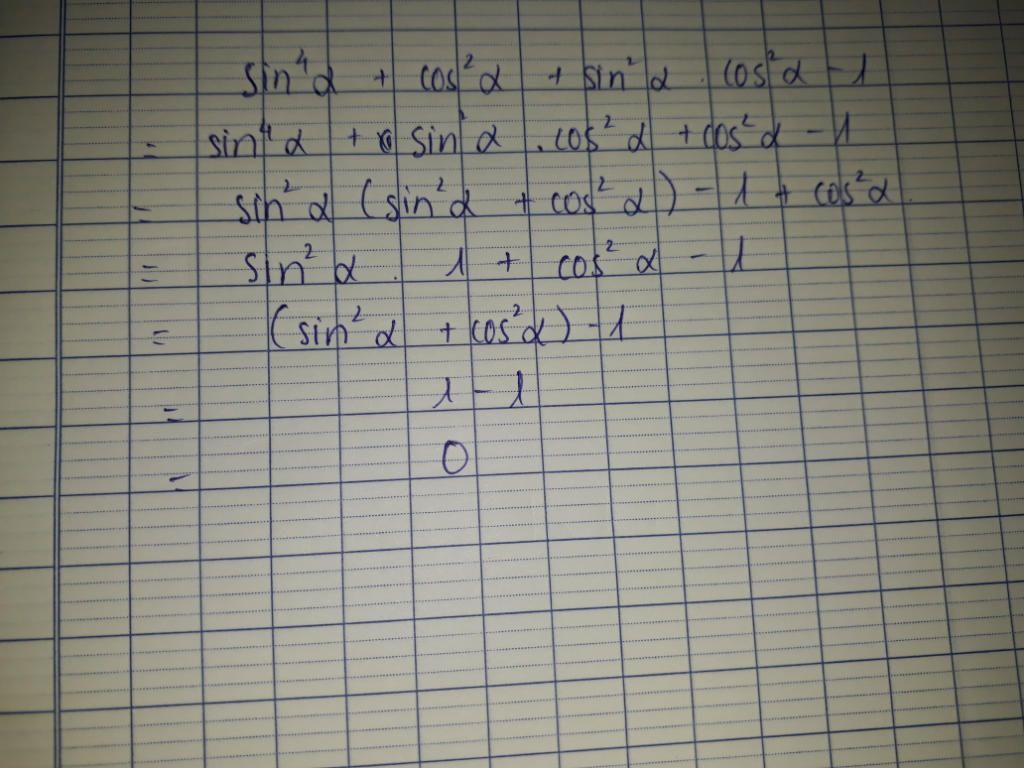 sin⁴α + cos²α + sin²α . cos²α - 1
= sin⁴α + sin²α . cos²α + cos²α - 1
= sin²α (sin²α + cos²α) - 1 + cos²α.
= sin²α . 1 + cos²α - 1
= (sin²α + cos²α) - 1
= 1 - 1
= 0